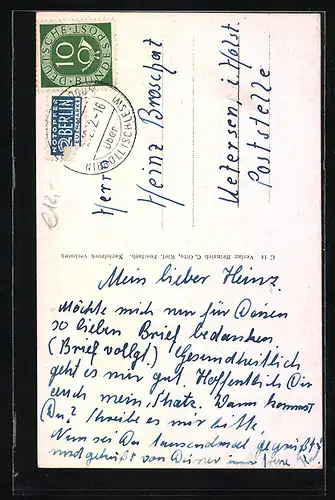 DEUTSCHE BUNDESPOST
10
NOTOPFER
2 BERLIN
STEUERMARKE
über
NIEBÜLL (SCHLESW)
Herrn
Heinz Broschat
Uetersen, i. Holst.
Poststelle
C 14 Verlag Heinrich C. Otto, Kiel, Postfach. Nachdruck verboten
Mein lieber Heinz.
Möchte mich nur für Deinen
so lieben Brief bedanken.
(Brief vollgt.) Gesundheitlich
geht es mir gut. Hoffentlich Dir
auch mein Schatz. Wann kommst
Du? Schreibe es mir bitte.
Nun sei Du tausendmal gegrüßt
und geküßt von Deiner